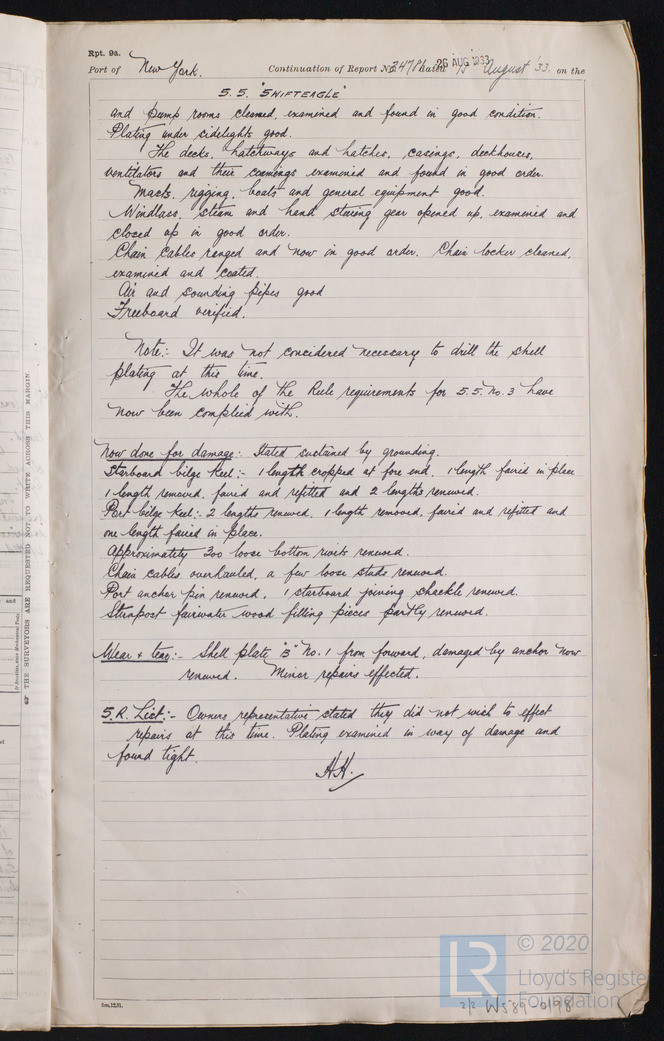 Rpt. 9a.
Port of New York. Continuation of Report No 34781 dated 26 AUG 1933 August '33. on the
S.S. "SWIFTEAGLE"
and pump rooms cleaned, examined and found in good condition.
Plating under sidelights good.
The decks, hatchways and hatches, casings, deckhouses,
ventilators and their coamings examined and found in good order.
Masts, rigging, boats and general equipment good.
Windlass, steam and hand steering gear opened up, examined and
closed up in good order.
Chain cables ranged and now in good order. Chain locker cleaned,
examined and coated.
Air and sounding pipes good
Freeboard verified.
Note:- It was not considered necessary to drill the shell
plating at this time.
The whole of the Rule requirements for S.S. No. 3 have
now been complied with.
Now done for damage:- Stated sustained by grounding.
Starboard bilge keel:- 1 length cropped at fore end, 1 length faired in place
1 length removed, faired and refitted and 2 lengths renewed.
Port bilge keel:- 2 lengths renewed, 1 length removed, faired and refitted and
one length faired in place.
Approximately 200 loose bottom rivets renewed.
Chain cables overhauled, a few loose studs renewed.
Port anchor pin renewed, 1 starboard joining shackle renewed.
Sternpost fairwater wood filling pieces partly renewed.
Wear & tear:- Shell plate "B" No. 1 from forward, damaged by anchor now
renewed. Minor repairs effected.
S.R. List:- Owners representative stated they did not wish to effect
repairs at this time. Plating examined in way of damage and
found tight.
H.H.
THE SURVEYORS ARE REQUESTED NOT TO WRITE ACROSS THIS MARGIN.
© 2020
LR
Lloyd's Registe
Foundation
2/2 W589-0198